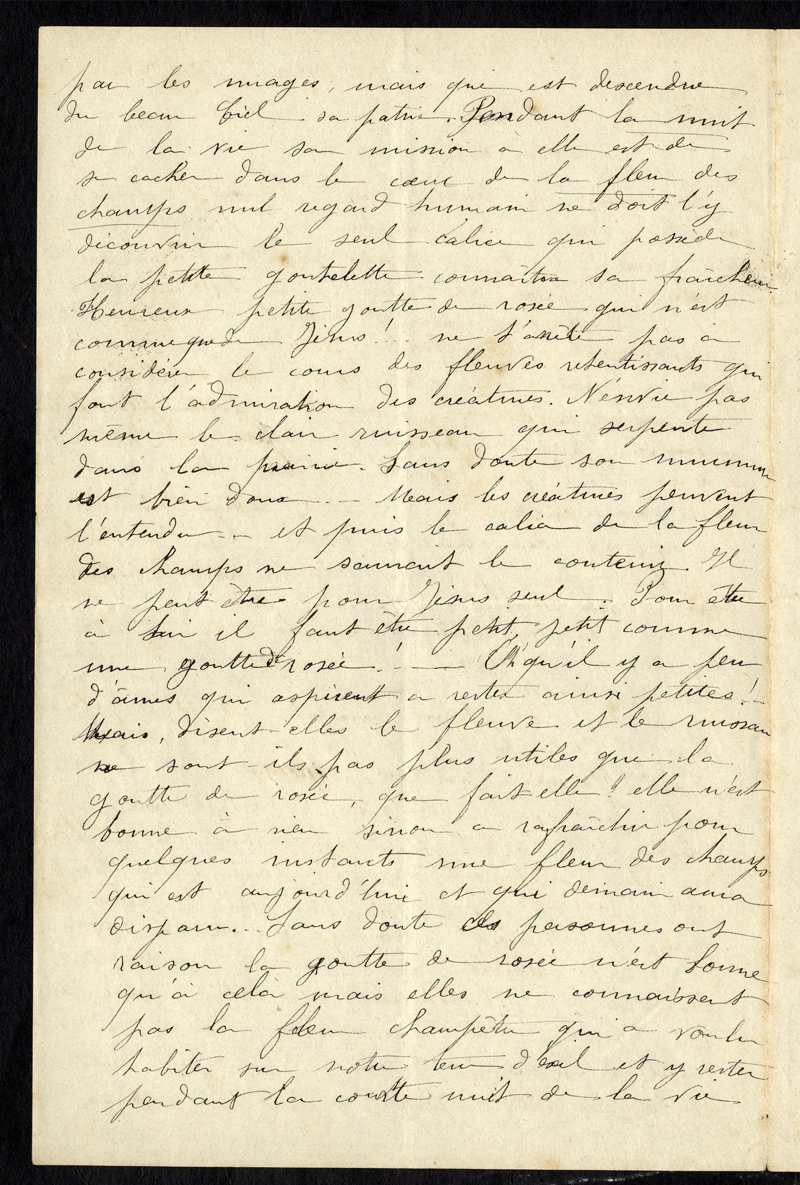 par les nuages, mais qui est descendue
du beau Ciel sa patrie. Pendant la nuit
de la vie sa mission à elle est de
se cacher dans le cœur de la fleur des
champs nul regard humain ne doit l'y
découvrir le seul calice qui possède
la petite gouttelette connaîtra sa fraîcheur
Heureuse petite goutte de rosée qui n'est
connue que de Jésus!.. ne t'arrête pas à
considérer le cours des fleuves retentissants qui
font l'admiration des créatures. N'envie pas
même le clair ruisseau qui serpente
dans la prairie. Sans doute son murmure
est bien doux... Mais les créatures peuvent
l'entendre... et puis le calice de la fleur
des champs ne saurait le contenir. Il
ne peut être pour Jésus seul. Pour être
à Lui il faut être petit, petit comme
une goutte de rosée!.. Oh! qu'il y a peu
d'âmes qui aspirent a rester ainsi petites!..
Mais, disent-elles le fleuve et le ruisseau
ne sont-ils pas plus utiles que la
goutte de rosée, que fait elle? elle n'est
bonne à rien sinon a rafraîchir pour
quelques instants une fleur des champs
qui est aujourd'hui et qui demain aura
disparu... Sans doute ces personnes ont
raison la goutte de rosée n'est bonne
qu'à cela mais elles ne connaissent
pas la fleur champêtre qui a voulu
habiter sur notre terre d'exil et y rester
pendant la courte nuit de la vie